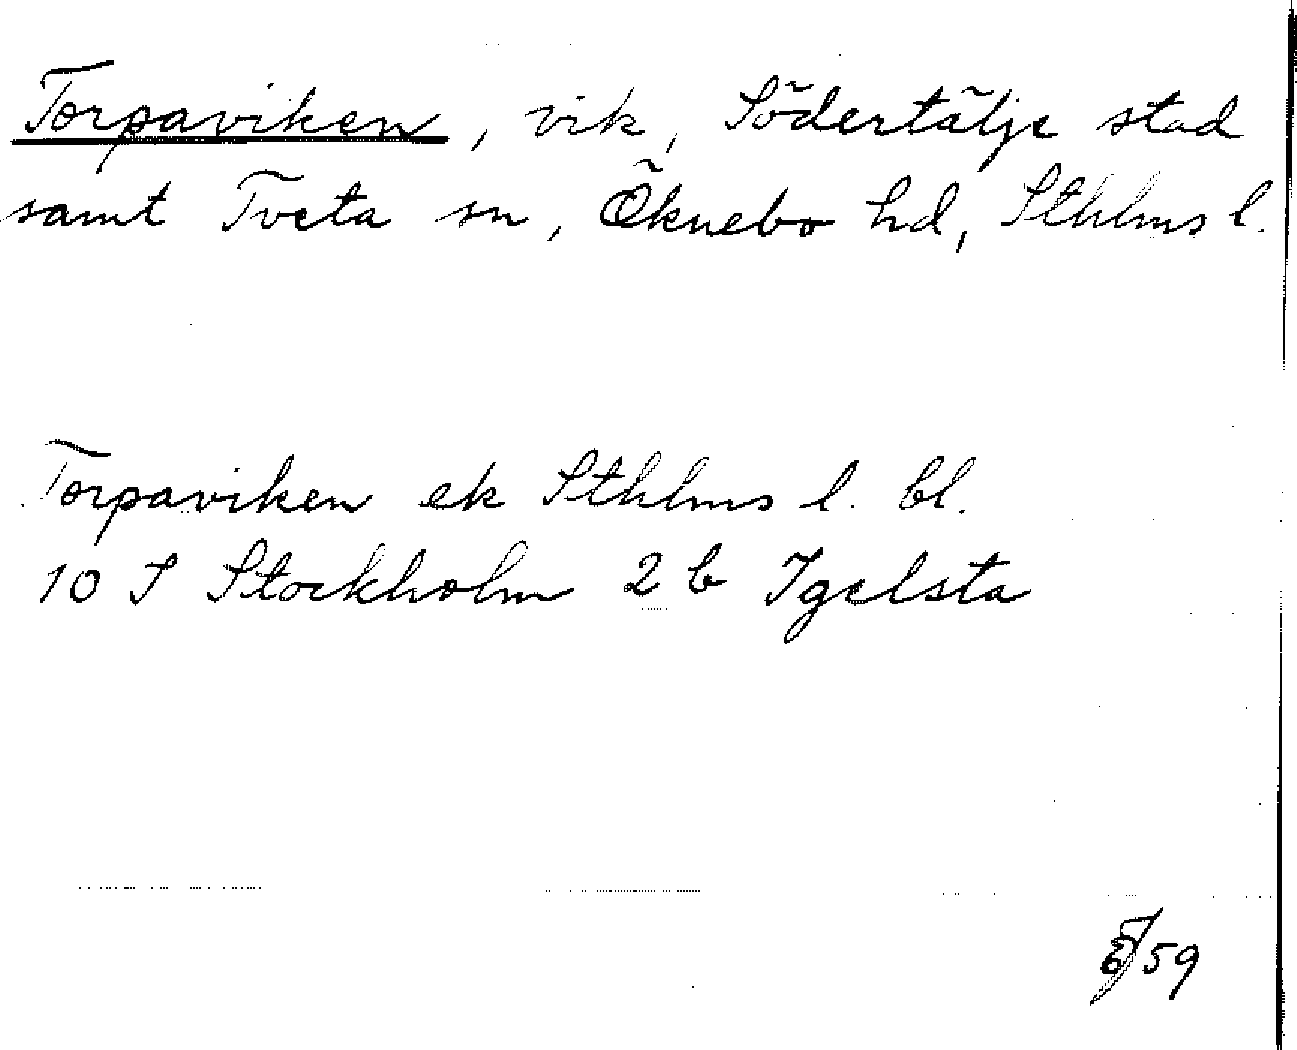 Torpaviken, vik, Södertälje stad
samt Tveta sn, Öknebo hd, Sthlms l.
Torpaviken ek Sthlms l. bl.
10 I Stockholm 2 b Igelsta
59